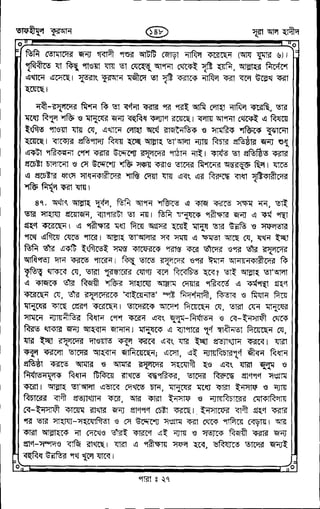 তাফহীমুল কুরআন
১৪৮
সূরা আল হাদীদ
তিনি তোমাদের জন্য গবাদী পশুর আটটি জোড়া নাযিল করেছেন (আয যুমার ৬)।
পৃথিবীতে যা কিছু পাওয়া যায় তা যেহেতু আপনা থেকেই সৃষ্টি হয়নি, আল্লাহর নির্দেশে
এখানে এসেছে। সুতরাং কুরআন মজীদে তা সৃষ্টি করাকে নাযিল করা বলে উল্লেখ করা
হয়েছে।
নবী-রসূলদের মিশন কি তা বর্ণনা করার পর পরই আমি লোহা নাযিল করেছি, তার
মধ্যে বিপুল শক্তি ও মানুষের জন্য বহুবিধ কল্যাণ রয়েছে। বলায় আপনা থেকেই এ বিষয়ে
ইংগিত পাওয়া যায় যে, এখানে লোহা অর্থে রাজনৈতিক ও সামরিক শক্তিকে বুঝানো
হয়েছে। বাক্যের প্রতিপাদ্য বিষয় হচ্ছে আল্লাহ তা'আলা ন্যায় বিচার প্রতিষ্ঠার জন্য শুধু
একটা পরিকল্পনা পেশ করার উদ্দেশ্যে রসূলদের পাঠান নাই। কার্যত তা প্রতিষ্ঠিত করার
প্রচেষ্টা চালানো ও সে উদ্দেশ্যে শক্তি সঞ্চয় করাও তাদের মিশনের অন্তরভুক্ত ছিল। যাতে
এ প্রচেষ্টার ধ্বংস সাধনকারীদের শাস্তি দেয়া যায় এবং এর বিরুদ্ধে বাধা সৃষ্টিকারীদের
শক্তি নির্মূল করা যায়।
৪৭. অর্থাৎ আল্লাহ দুর্বল, তিনি আপন শক্তিতে এ কাজ করতে সক্ষম নন, তাই
তার সাহায্য প্রয়োজন, ব্যাপারটা তা নয়। তিনি মানুষকে পরীক্ষার জন্য এ কর্ম পন্থা
গ্রহণ করেছেন। এ পরীক্ষার মধ্য দিয়ে অগ্রসর হয়েই মানুষ তার উন্নতি ও সফলতার
পথে এগিয়ে যেতে পারে। আল্লাহ তা'আলার সব সময় এ ক্ষমতা আছে যে, যখন ইচ্ছা
তিনি তাঁর একটি ইংগিতেই সমস্ত কাফেরকে পরাস্ত করে তাঁদের ওপর তাঁর রসূলদের
আধিপত্য দান করতে পারেন। কিন্তু তাতে রসূলদের ওপর ঈমান আনয়নকারীদের কি
কৃতিত্ব থাকবে যে, তারা পুরস্কারের যোগ্য বলে বিবেচিত হবে? তাই আল্লাহ তা'আলা
এ কাজকে তাঁর বিজয়ী শক্তির সাহায্যে আঞ্জাম দেয়ার পরিবর্তে এ কর্মপন্থা গ্রহণ
করেছেন যে, তাঁর রসূলদেরকে 'বাইয়েনাত' স্পষ্ট নিদর্শনাদি, কিতাব ও মিযান দিয়ে
মানুষের কাছে প্রেরণ করেছেন। তাদেরকে আদেশ দিয়েছেন যে, তারা যেন মানুষের
সামনে ন্যায়নীতির বিধান পেশ করেন এবং জুলুম-নির্যাতন ও বে-ইনসাফী থেকে
বিরত থাকার জন্য আহবান জানান। মানুষকে এ ব্যাপারে পূর্ণ স্বাধীনতা দিয়েছেন যে,
যার ইচ্ছা রসূলদের দাওয়াত কবুল করবে এবং যার ইচ্ছা প্রত্যাখ্যান করবে। যারা
কবুল করলো তাদের আহবান জানিয়েছেন; এসো, এই ন্যায়বিচারপূর্ণ জীবন বিধান
প্রতিষ্ঠা করতে আমার ও আমার রসূলদের সহযোগী হও এবং যারা জুলুম ও
নির্যাতনমূলক বিধান টিকিয়ে রাখতে বদ্ধপরিকর, তাদের বিরুদ্ধে প্রাণপণ সংগ্রাম
করো। আল্লাহ তা'আলা এভাবে দেখতে চান, মানুষের মধ্যে কারা ইনসাফ ও ন্যায়
বিচারের বাণী প্রত্যাখ্যান করে, আর কারা ইনসাফ ও ন্যায়বিচারের মোকাবিলায়
বে-ইনসাফী কায়েম রাখার জন্য প্রাণপণ চেষ্টা করছে। ইনসাফের বাণী গ্রহণ করার
পর তার সাহায্য-সহযোগিতা ও সে উদ্দেশ্যে সংগ্রাম করা থেকে পালিয়ে বেড়ায়। আর
কারা আল্লাহকে না দেখেও তাঁরই কারণে এই ন্যায় ও সত্যকে বিজয়ী করার জন্য
প্রাণ-সম্পদের বাজি রাখছে। যারা এ পরীক্ষায় সফল হবে, ভবিষ্যতে তাদের জন্যই
বহুবিধ উন্নতির পথ খুলে যাবে।
পারা ঃ ২৭